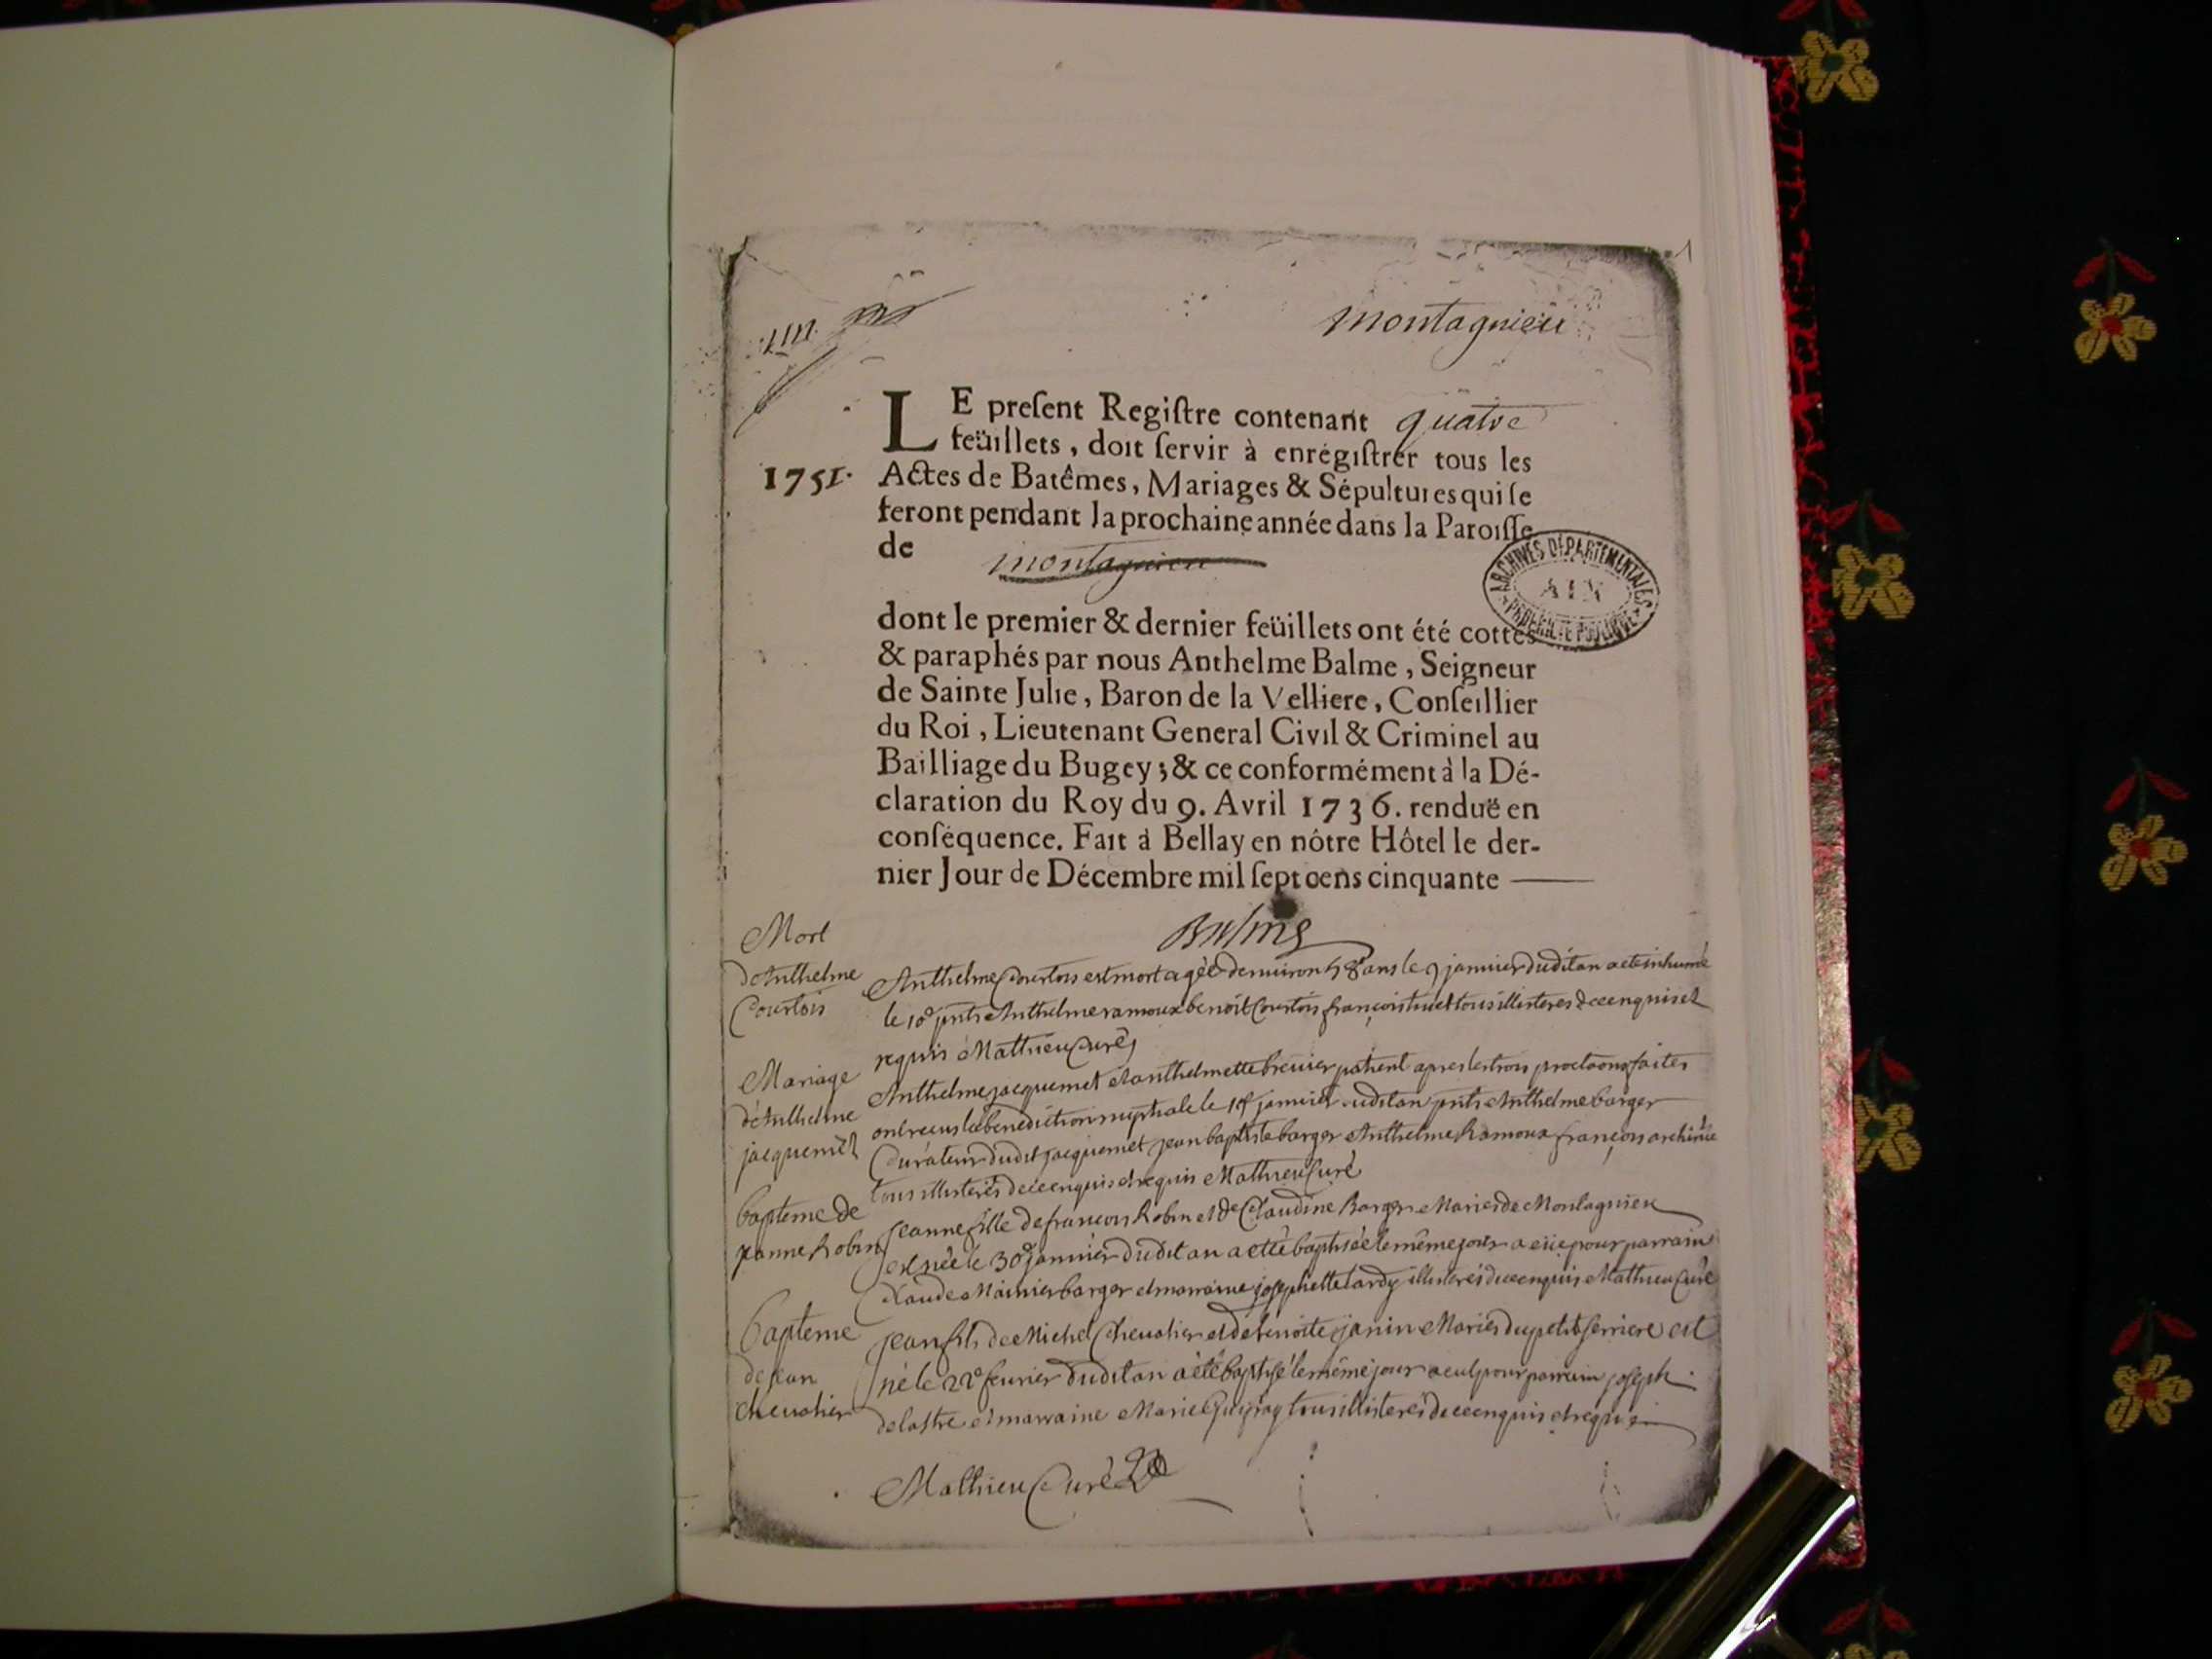 montagnieu
LE preſent Regiſtre contenant quatre
feüillets, doit ſervir à enrégiſtrer tous les
1751. Actes de Batêmes, Mariages & Sépultures qui ſe
feront pendant la prochaine année dans la Paroiſſe
de montagnieu
ARCHIVES DÉPARTEMENTALES
AIN
dont le premier & dernier feüillets ont été cottés
& paraphés par nous Anthelme Balme, Seigneur
de Sainte Julie, Baron de la Velliere, Conſeillier
du Roi, Lieutenant General Civil & Criminel au
Bailliage du Bugey; & ce conformément à la Dé-
claration du Roy du 9. Avril 1736. renduë en
conſéquence. Fait à Bellay en nôtre Hôtel le der-
nier Jour de Décembre mil ſept cens cinquante
Balme
Mort
d'Anthelme
Courtois
Anthelme Courtois est mort agé d'environ ans le 9 janvier dudit an a ete inhumé
le 10e Anthelme ramoux benoit Courtois françois tous illisteres de ce enquis et
requis Mathieu Curé
Mariage
d'Anthelme
jacquemet
Anthelme jacquemet et anthelmette brevier apres les trois faites
ont receus la benediction nuptiale le janvier dudit an Anthelme barger
Curateur dudit jacquemet jean baptiste barger Anthelme Ramoux françois
tous illisterés de ce enquis et requis Mathieu Curé
bapteme de
jeanne Robin
jeanne fille de francois Robin et de Claudine Barger Mariés de Montagnieu
est née le 30e janvier dudit an a etté baptisée le même jour a eüe pour parrain
Claude barger et marraine josephette tardy illisterés de ce enquis Mathieu Curé
bapteme
de jean
chevalier
jean fils de Michel Chevalier et de benoite janin Mariés du petit serriere est
né le 22e fevrier dudit an a été baptisé le même jour a eut pour parrain joseph
delastre et marraine Marie tous illisterés de ce enquis et requis
Mathieu Curé